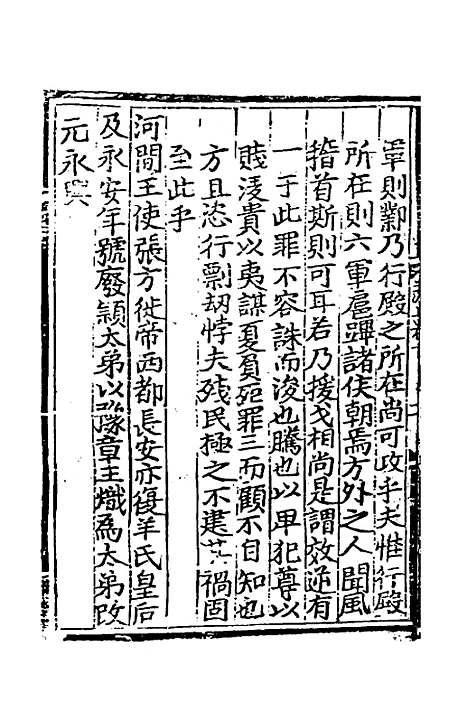 單則鄴乃行殿之所在尚可攻乎夫惟行殿
所在則六軍扈蹕諸侯朝焉方外之人聞風
稽首斯則可耳若乃援戈相尚是謂效逆有
一于此罪不容誅而浚也騰也以卑犯尊以
賤凌貴以夷謀夏負死罪三而顧不自知也
方且恣行剽刼悖夫残民極之不建其禍固
至此乎
河間王使張方徙帝西都長安亦復羊氏皇后
及永安年號廢穎太弟以豫章王熾為太弟改
元永興